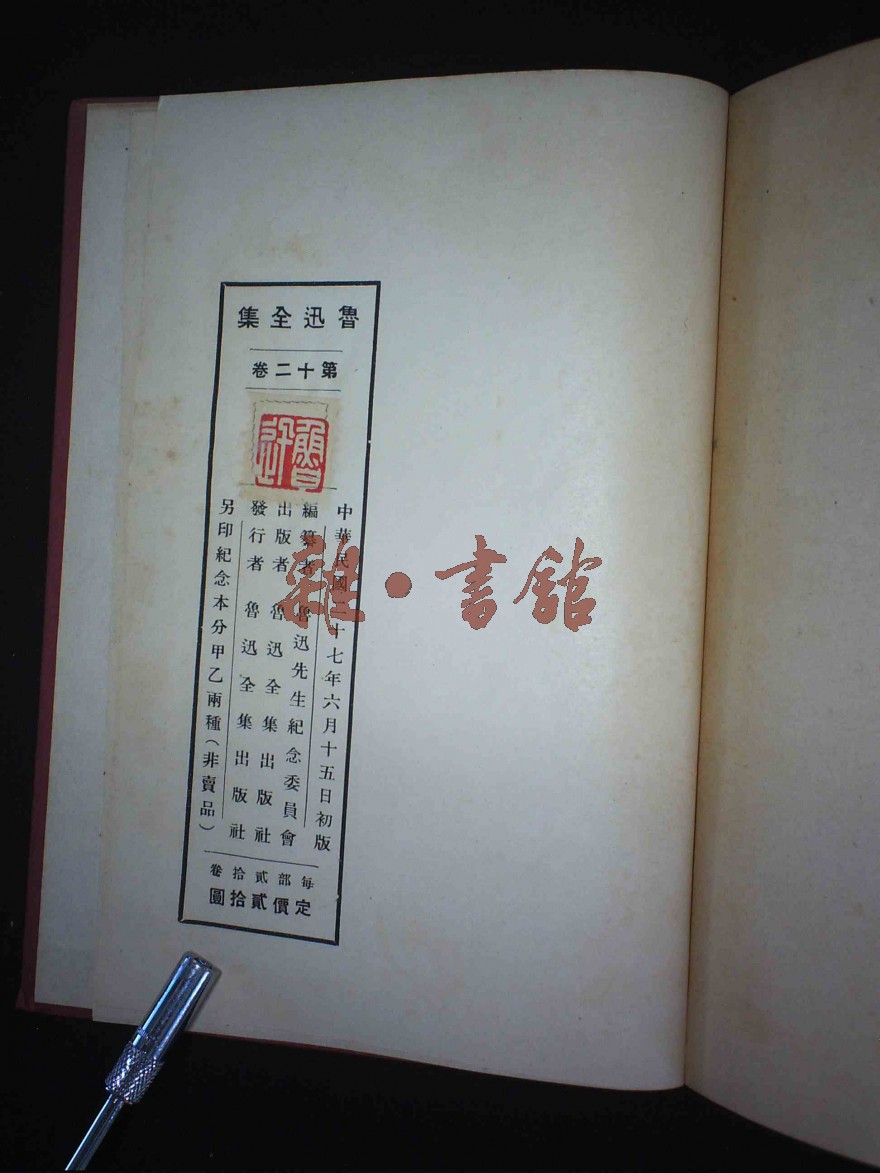 魯迅全集
第十二卷
中華民國二十七年六月十五日初版
編纂者 魯迅先生紀念委員會
出版者 魯迅全集出版社
發行者 魯迅全集出版社
另印紀念本分甲乙兩種（非賣品）
每部貳拾卷
定價貳拾圓
雜·書館